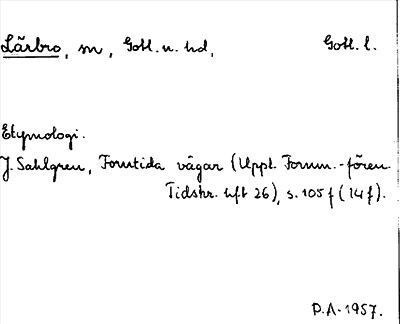 Lärbro, sn, Gotl. n. hd, Gotl. l.
Etymologi.
J. Sahlgren, Forntida vägar (Uppl. Fornm.-fören.
Tidskr. hft 26), s. 105 f (14 f).
D.A. 1957.